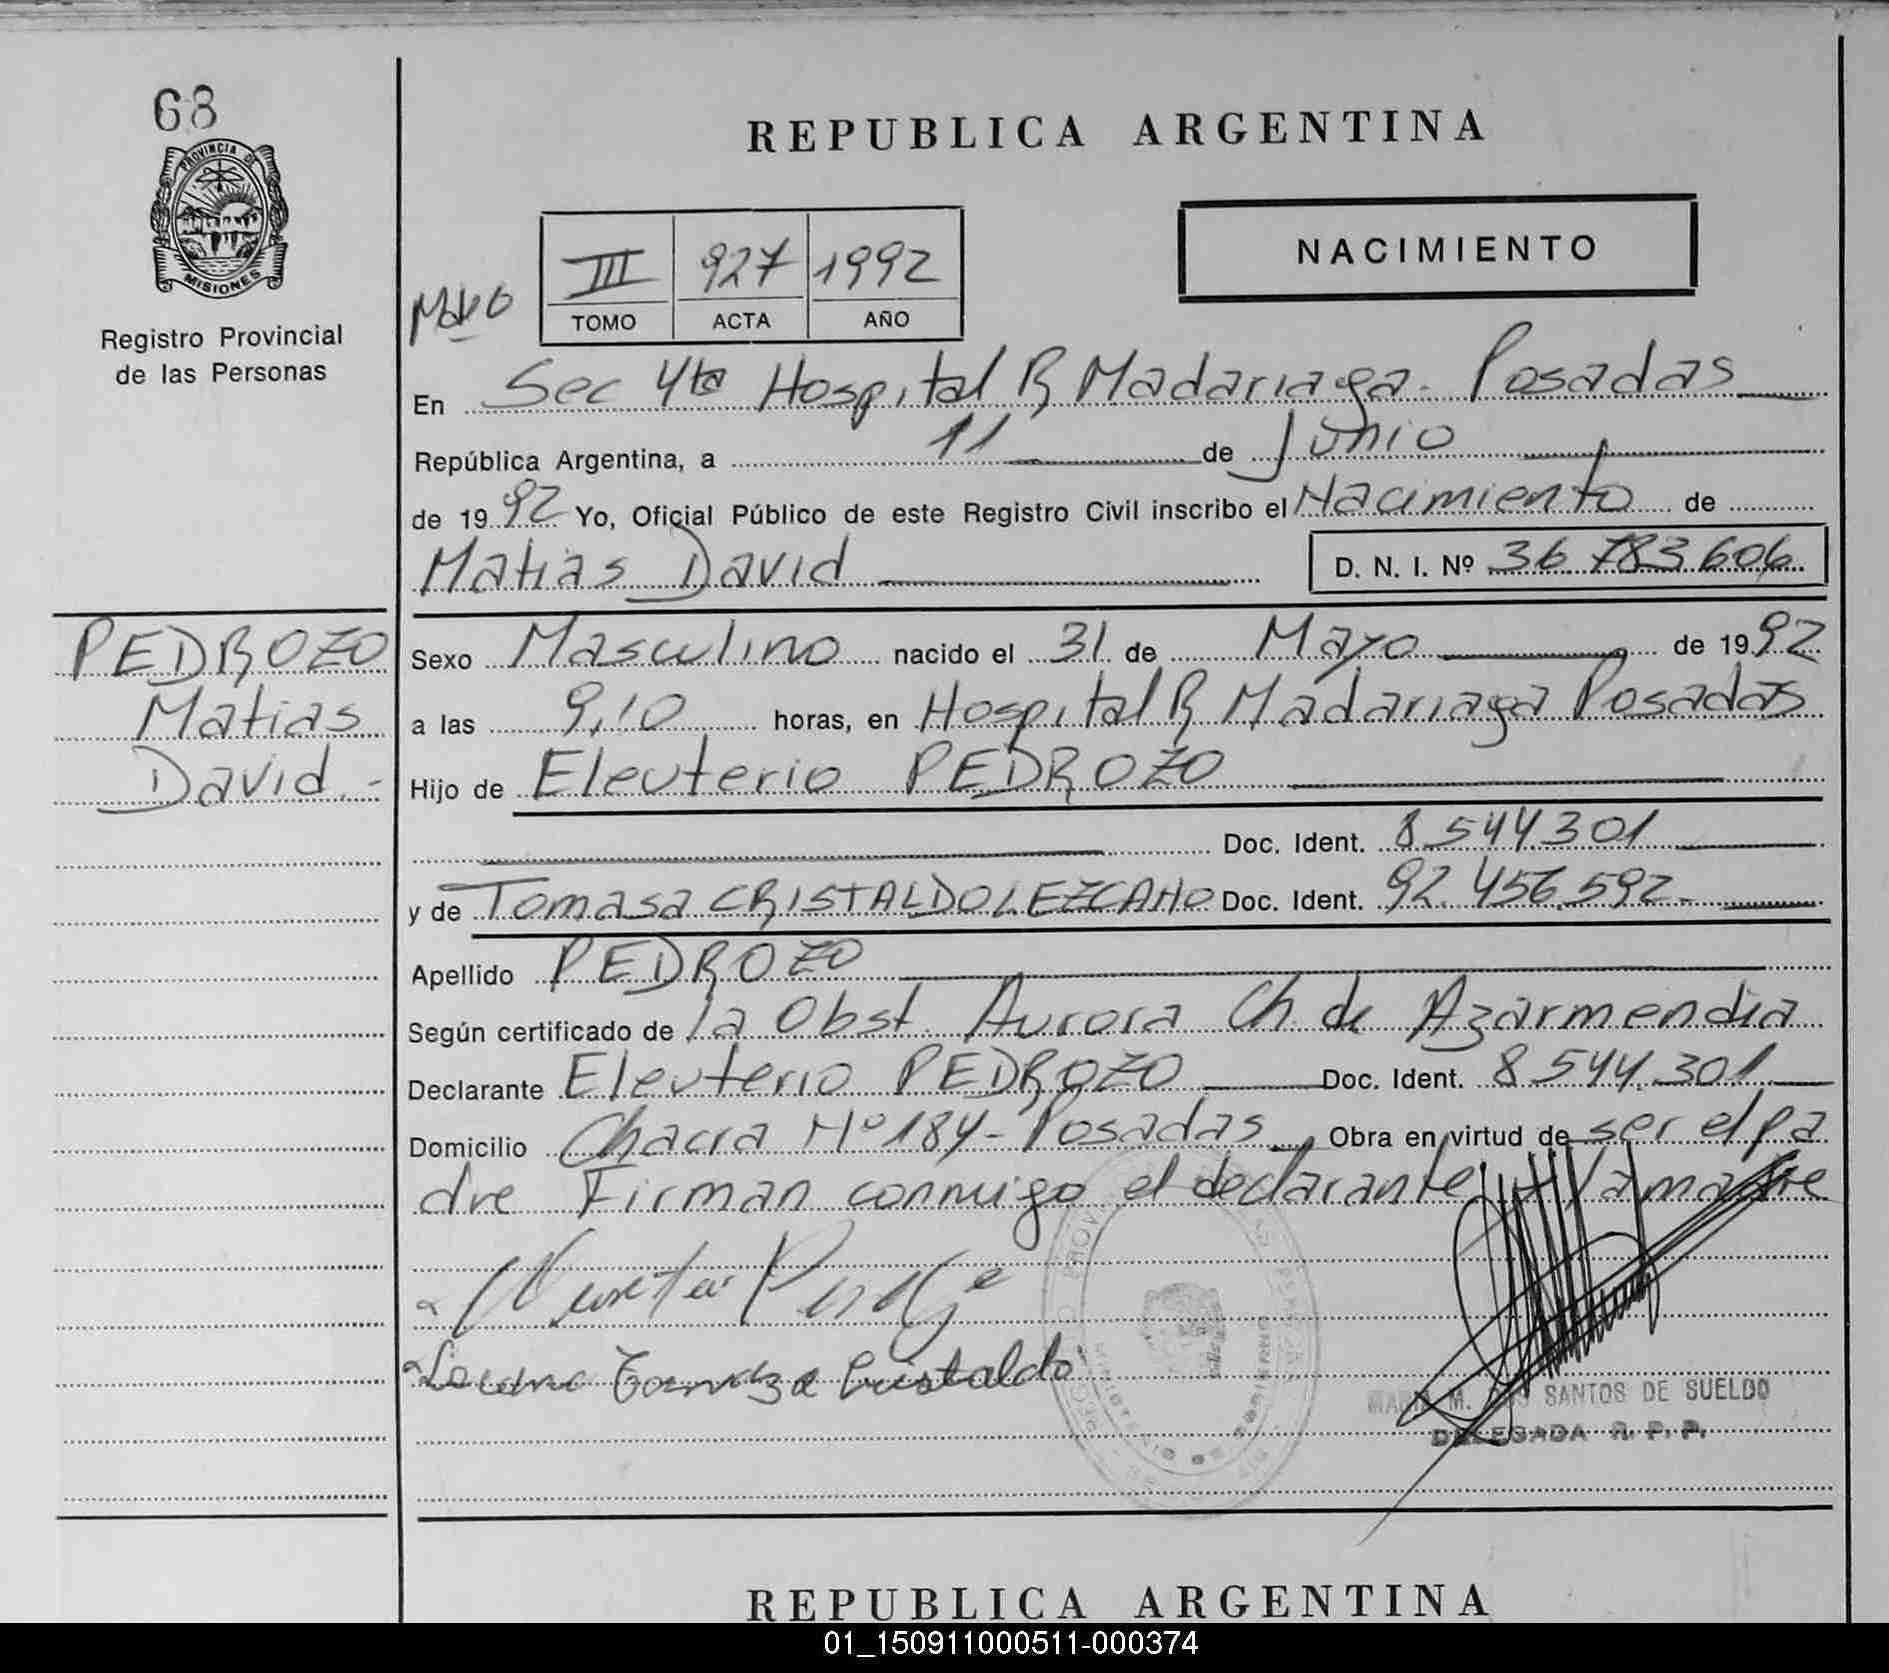 68
PROVINCIA DE
MISIONES
Registro Provincial
de las Personas
REPUBLICA ARGENTINA
NACIMIENTO
Mayo
III 927 1992
TOMO ACTA AÑO
En Sec 4ta Hospital R Madariaga - Posadas
República Argentina, a 11 de Junio
de 1992 Yo, Oficial Público de este Registro Civil inscribo el Nacimiento de
Matias David D. N. I. Nº 36.783.606
PEDROZO
Matias
David.-
Sexo Masculino nacido el 31 de Mayo de 1992
a las 9,10 horas, en Hospital R Madariaga Posadas
Hijo de Eleuterio PEDROZO
Doc. Ident. 8.544.301
y de Tomasa CRISTALDO LEZCANO Doc. Ident. 92.456.592-
Apellido PEDROZO
Según certificado de la Obst. Aurora Ch. de Azarmendia
Declarante Eleuterio PEDROZO Doc. Ident. 8.544.301
Domicilio Chacra Nº 184 - Posadas, Obra en virtud de ser el pa
dre Firman conmigo el declarante y la madre
Cristaldo
MARIA M. DOS SANTOS DE SUELDO
DELEGADA R. P. P.
REPUBLICA ARGENTINA
01_150911000511-000374